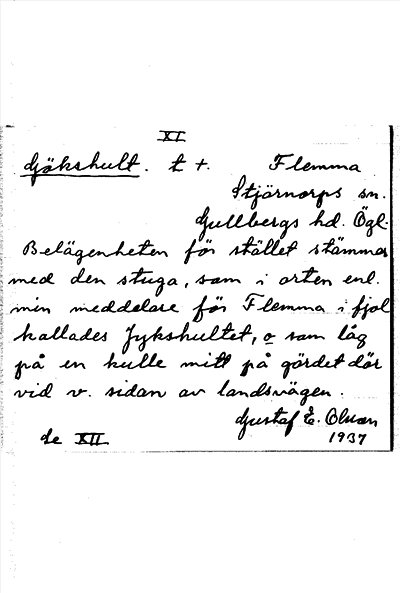 XI
Gökshult. t +. Flemma
Stjärnorps sn.
Gullbergs hd. Ögl.
Belägenheten för stället stämmer
med den stuga, som i orten enl.
min meddelare för Flemma i fjol
kallades Jykshultet, o som låg
på en kulle mitt på gärdet där
vid v. sidan av landsvägen.
Gustaf E. Olsson
de XII 1937